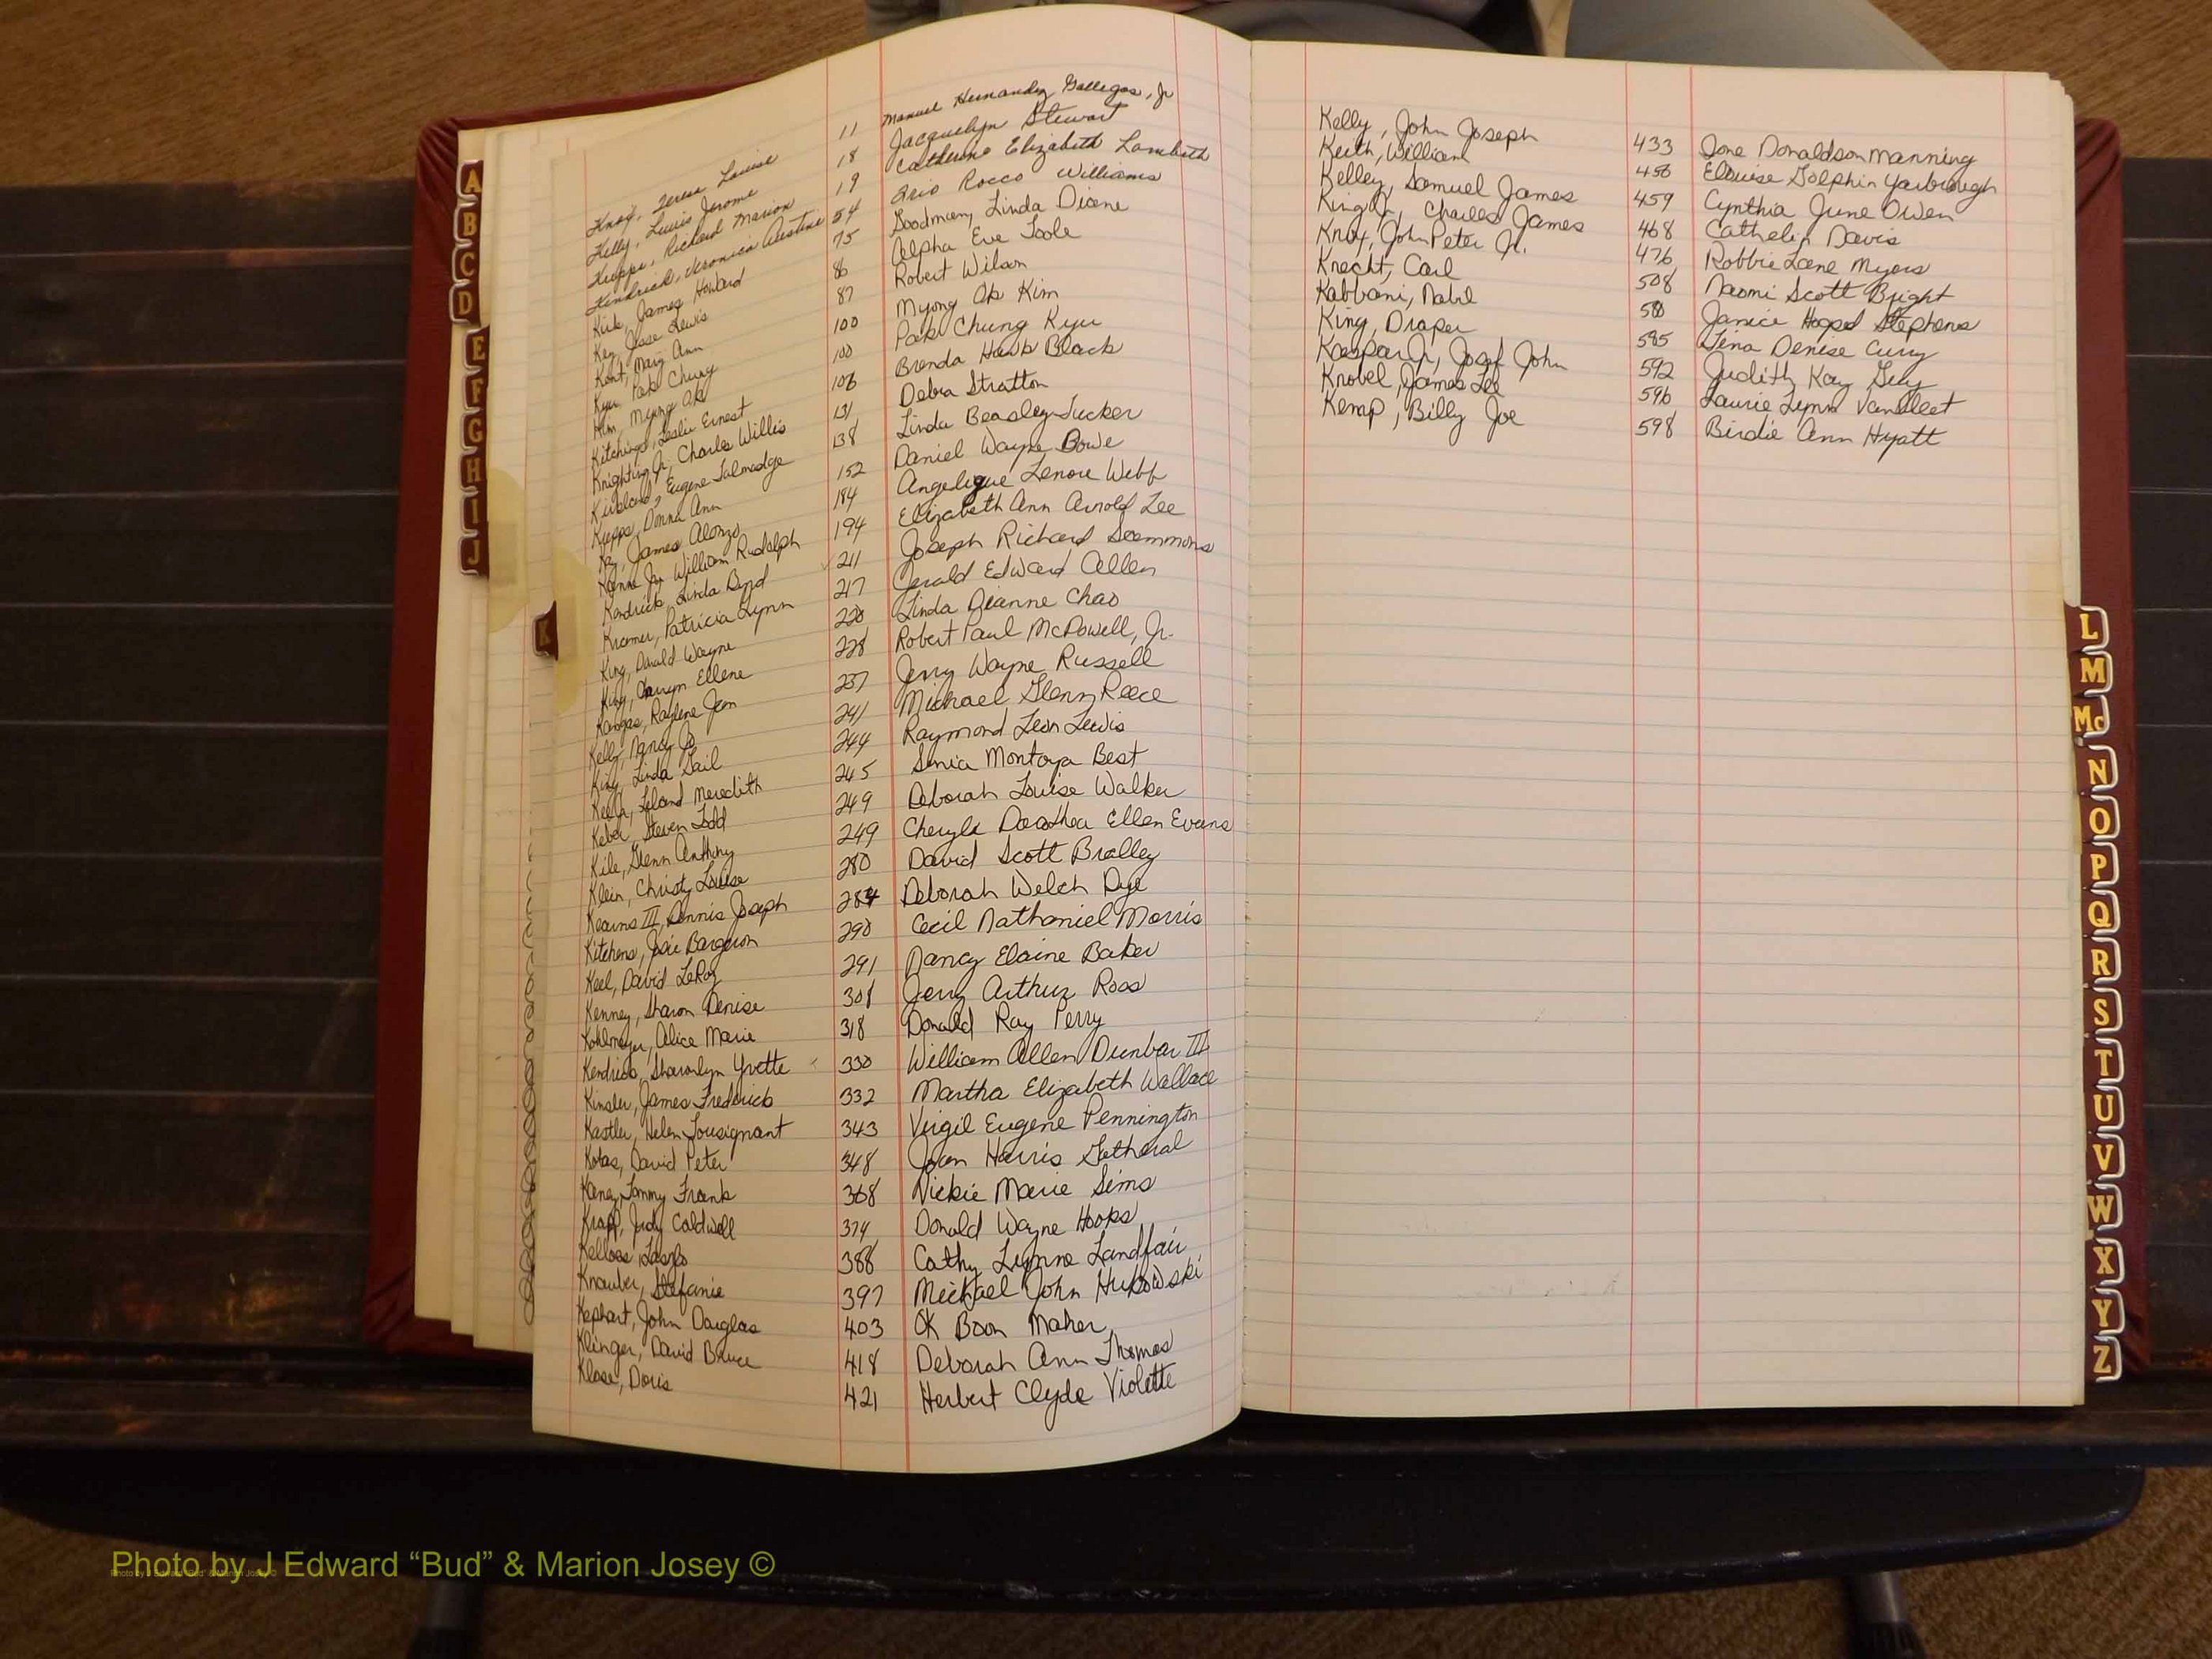 A
B
C
D
E
F
G
H
I
J
K
Knox, Teresa Louise 11 Manuel Hernandez Gallegos, Jr
Kelly, Louis Jerome 18 Jacquelyn Stewart
Richard Marion 19 Catherine Elizabeth Lambeth
Kendrick, Veronica 54 Rocco Williams
Kirk, James Howard 75 Goodman, Linda Diane
Key, Jesse Lewis 86 Alpha Eve Toole
Kent, Mary Ann 87 Robert Wilson
Kyu, Pak Chung 100 Myong Ok Kim
Kim, Myong Ok 100 Pak Chung Kyu
Kitchings, Leslie Ernest 106 Brenda Hawk Black
Knighting Jr, Charles Willis 131 Debra Stratton
Kirkland, Eugene Talmadge 138 Linda Beasley Tucker
Donna Ann 152 Daniel Wayne Bowe
James Alonzo 184 Angelique Lenore Webb
William Rudolph 194 Elizabeth Ann Arnold Lee
Kendrick, Linda Byrd 211 Joseph Richard Scemmons
Kramer, Patricia Lynn 217 Gerald Edward Allen
King, Donald Wayne 220 Linda Deanne Chao
King, Ellene 228 Robert Paul McDowell, Jr.
Raylene Jean 237 Jerry Wayne Russell
Kelly, Nancy Jo 241 Michael Glenn Reece
King, Linda Gail 244 Raymond Leon Lewis
Leland Meredith 245 Sonia Montoya Best
Keber, Steven Todd 249 Deborah Louise Walker
Kile, Glenn Anthony 249 Cheryle Dorothea Ellen Evans
Klein, Christy Louise 280 David Scott Bralley
Kearns III, Dennis Joseph 284 Deborah Welch Dye
Kitchens, Josie Bargeron 290 Cecil Nathaniel Morris
Keel, David LeRoy 291 Nancy Elaine Baker
Kenney, Sharon Denise 308 Jerry Arthur Ross
Kohlmeyer, Alice Marie 318 Donald Ray Perry
Kendrick, Sharonlyn Yvette 330 William Allen Dunbar III
Kinsler, James Frederick 332 Martha Elizabeth Wallace
Kastler, Helen Tousignant 343 Virgil Eugene Pennington
Kotas, David Peter 348 Joan Harris Gatheral
Kaney, Tommy Frank 368 Vickie Marie Sims
Krapf, Judy Caldwell 374 Donald Wayne Hooks
388 Cathy Lynne Landfair
Knauber, Stefanie 397 Michael John Hukowski
Kephart, John Douglas 403 OK Boon Maher
Klinger, David Bruce 418 Deborah Ann Thomas
Klose, Doris 421 Herbert Clyde Violette
Kelly, John Joseph 433 Ione Donaldson Manning
Keith, William 456 Elouise Golphin Yarbrough
Kelley, Samuel James 459 Cynthia June Owen
King Jr, Charles James 468 Cathelin Davis
Knox, John Peter Jr. 476 Robbie Lane Myers
Knecht, Carl 508 Naomi Scott Bright
Kabbani, Nabil Janice Stephens
King, Draper 585 Tina Denise Curry
Kaspar Jr, Josef John 592 Judith Kay Guy
Knobel, James Lee 596 Laurie Lynn Vanfleet
Kemp, Billy Joe 598 Birdie Ann Hyatt
L
M
Mc
N
O
P
Q
R
S
T
U
V
W
X
Y
Z
Photo by J Edward “Bud” & Marion Josey ©